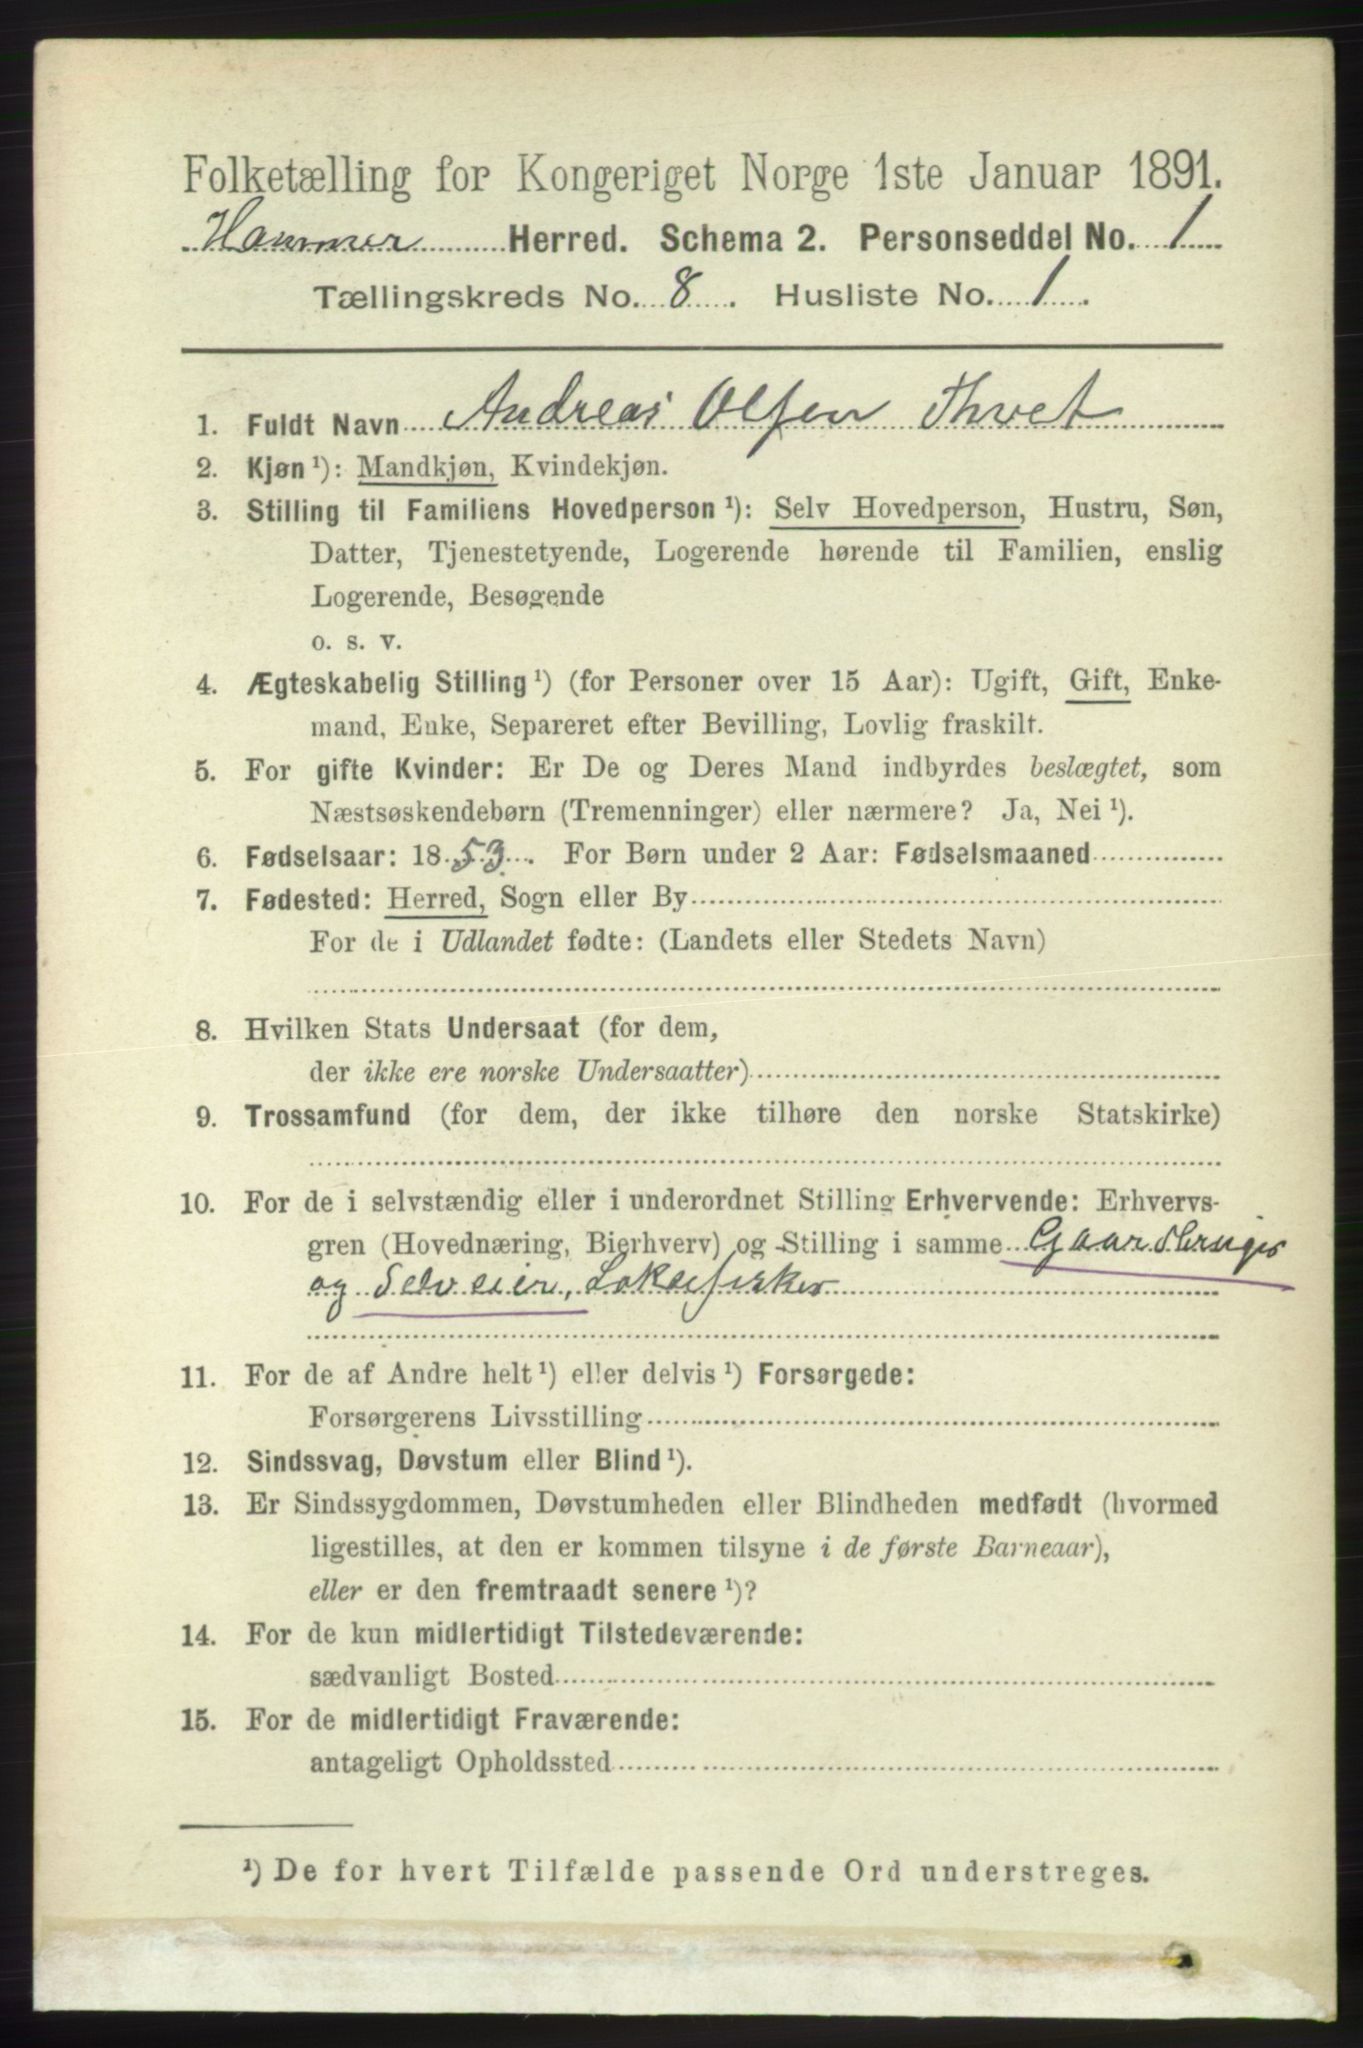 Folketælling for Kongeriget Norge 1ste Januar 1891.
Hammer Herred. Schema 2. Personseddel No. 1
Tællingskreds No. 8. Husliste No. 1.
1. Fuldt Navn Andreas Olsen Thvet
2. Kjøn ¹): Mandkjøn, Kvindekjøn.
3. Stilling til Familiens Hovedperson ¹): Selv Hovedperson, Hustru, Søn,
Datter, Tjenestetyende, Logerende hørende til Familien, enslig
Logerende, Besøgende
o. s. v.
4. Ægteskabelig Stilling ¹) (for Personer over 15 Aar): Ugift, Gift, Enke-
mand, Enke, Separeret efter Bevilling, Lovlig fraskilt.
5. For gifte Kvinder: Er De og Deres Mand indbyrdes beslægtet, som
Næstsøskendebørn (Tremenninger) eller nærmere? Ja, Nei ¹).
6. Fødselsaar: 1853. For Børn under 2 Aar: Fødselsmaaned
7. Fødested: Herred, Sogn eller By
For de i Udlandet fødte: (Landets eller Stedets Navn)
8. Hvilken Stats Undersaat (for dem,
der ikke ere norske Undersaatter)
9. Trossamfund (for dem, der ikke tilhøre den norske Statskirke)
10. For de i selvstændig eller i underordnet Stilling Erhvervende: Erhvervs-
gren (Hovednæring, Bierhverv) og Stilling i samme Gaardbruger
og Selveier, Laksefisker
11. For de af Andre helt ¹) eller delvis ¹) Forsørgede:
Forsørgerens Livsstilling
12. Sindssvag, Døvstum eller Blind ¹).
13. Er Sindssygdommen, Døvstumheden eller Blindheden medfødt (hvormed
ligestilles, at den er kommen tilsyne i de første Barneaar),
eller er den fremtraadt senere ¹)?
14. For de kun midlertidigt Tilstedeværende:
sædvanligt Bosted
15. For de midlertidigt Fraværende:
antageligt Opholdssted
¹) De for hvert Tilfælde passende Ord understreges.